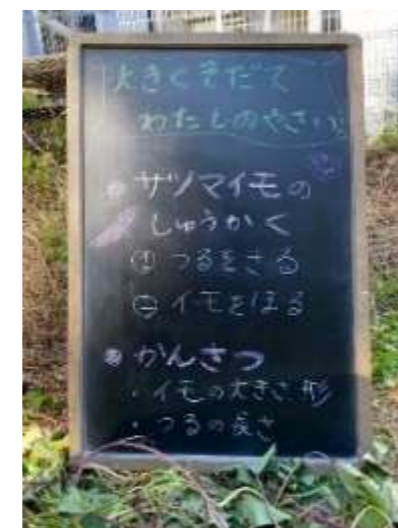 大きくそだて
わたしのやさい
●サツマイモの
しゅうかく
① つるをきる
② イモをほる
●かんさつ
・イモの大きさ 形
・つるの長さ